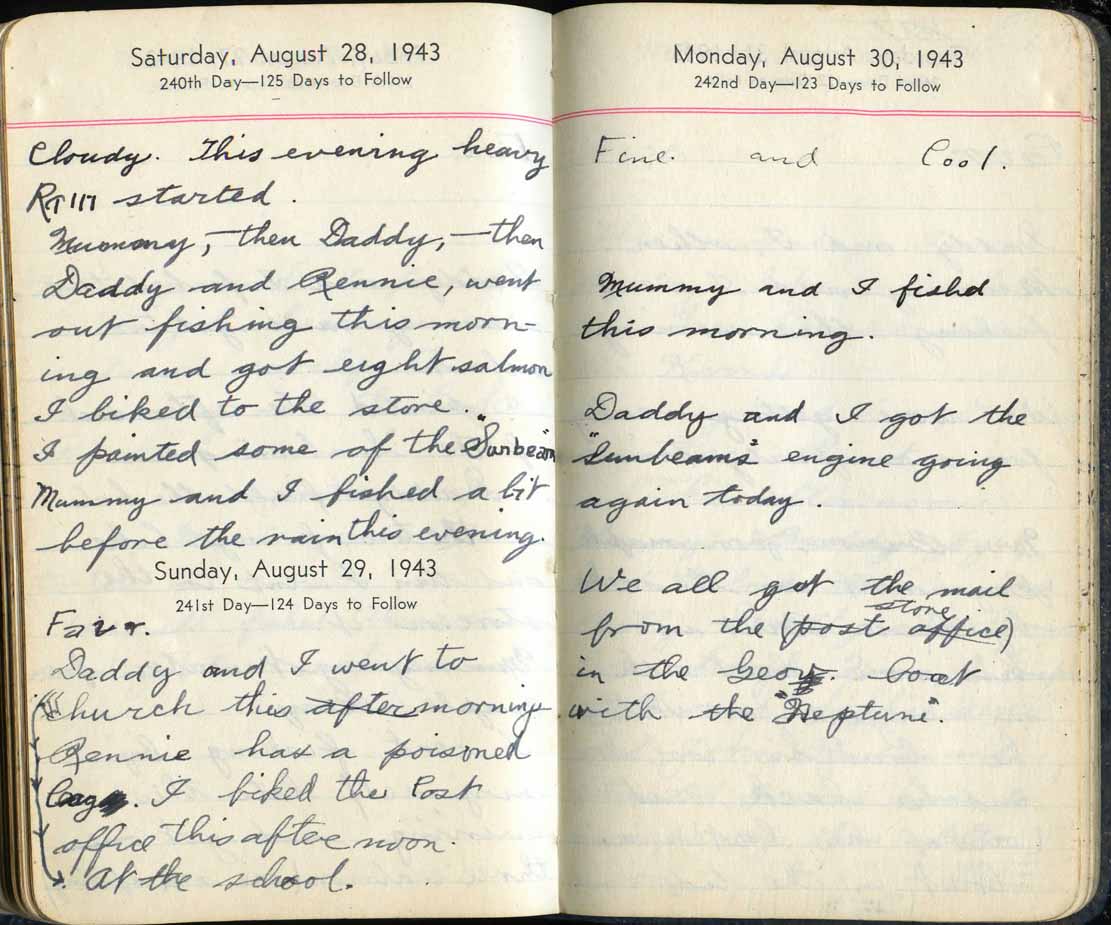 Saturday, August 28, 1943
240th Day—125 Days to Follow
Cloudy. This evening heavy
started.
Mummy, – then Daddy, – then
Daddy and Rennie, went
out fishing this morn-
ing and got eight salmon
I biked to the store.
I painted some of the "Sunbeam"
Mummy and I fished a bit
before the rain this evening.
Sunday, August 29, 1943
241st Day—124 Days to Follow
Fair.
Daddy and I went to
church this after morning
Rennie has a poisoned
I biked the Post
office this after noon.
At the school.
Monday, August 30, 1943
242nd Day—123 Days to Follow
Fine and Cool.
Mummy and I fishd
this morning.
Daddy and I got the
"Sunbeam's" engine going
again today.
We all got the mail
store
from the (post office)
in the boat
with the "Neptune".